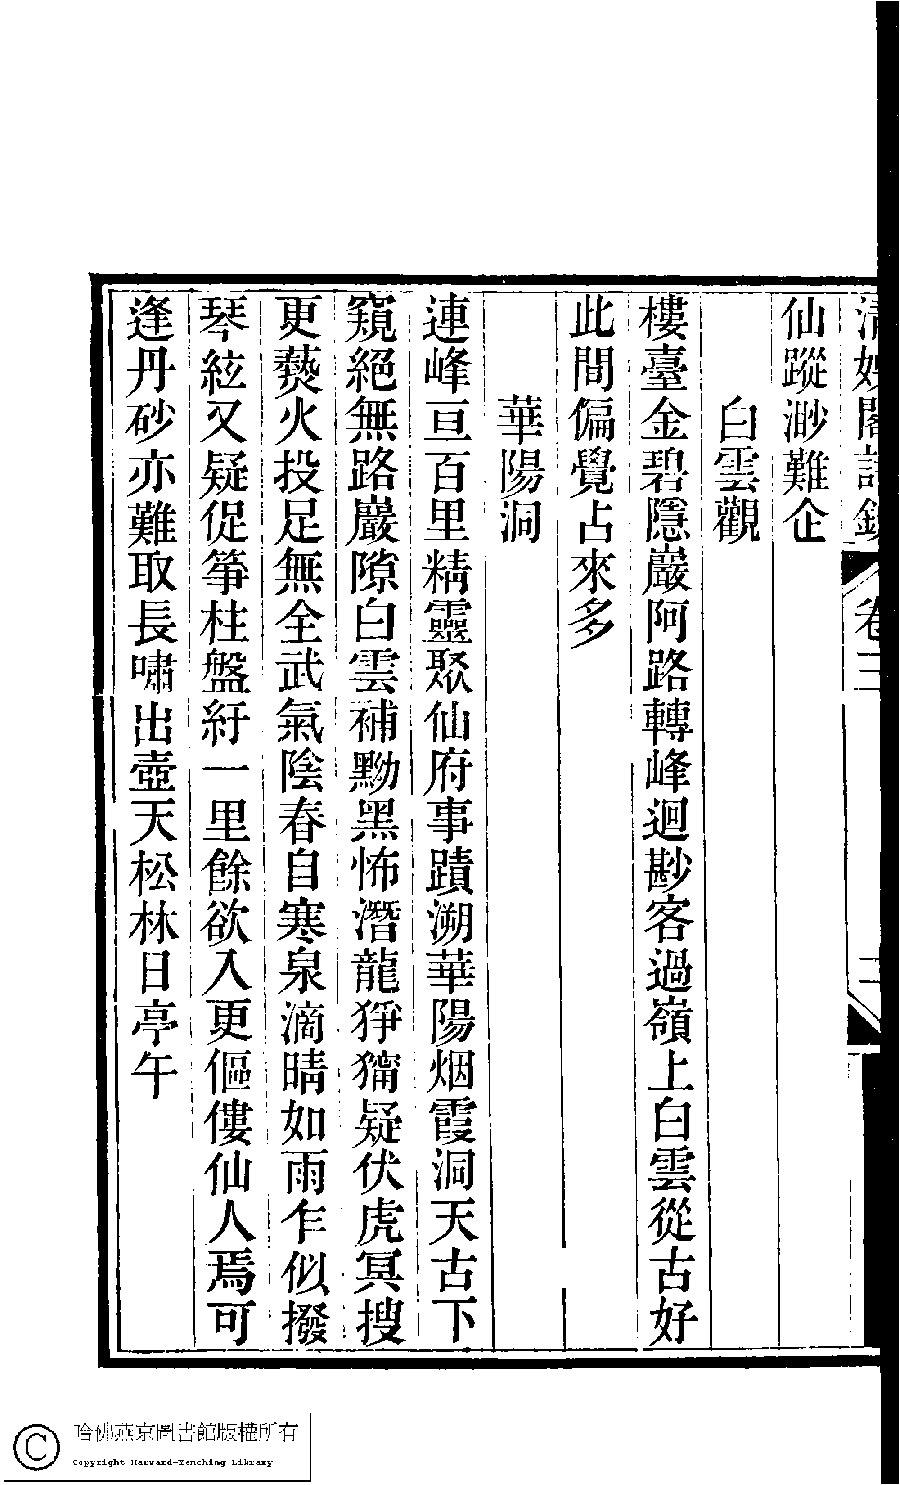 清娛閣詩鈔 卷三 二
仙蹤渺難企
白雲觀
樓臺金碧隱巖阿路轉峰迴尠客過嶺上白雲從古好
此間偏覺占來多
華陽洞
連峰亘百里精靈聚仙府事蹟溯華陽烟霞洞天古下
窺絕無路巖隙白雲補黝黑怖潛龍猙獰疑伏虎冥搜
更爇火投足無全武氣陰春自寒泉滴晴如雨乍似撥
琴絃又疑促箏柱盤紆一里餘欲入更傴僂仙人焉可
逢丹砂亦難取長嘯出壺天松林日亭午
哈佛燕京圖書館版權所有
Copyright Harvard-Yenching Library